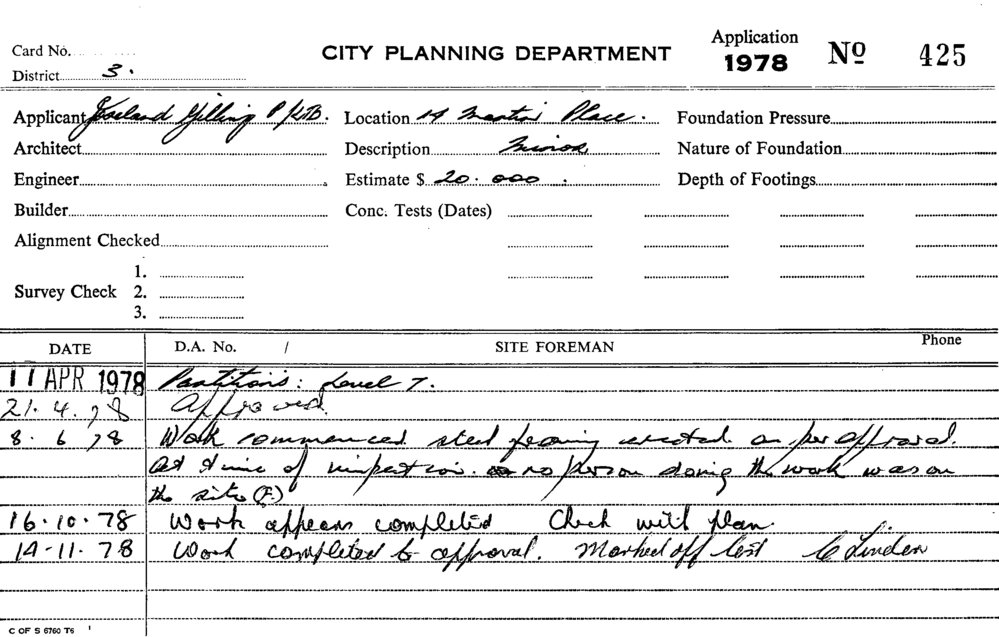 Card No.
CITY PLANNING DEPARTMENT
Application
1978 No 425
District 3.
Applicant Gilling P/LTD. Location 14 Martin Place. Foundation Pressure
Architect Description Minor Nature of Foundation
Engineer Estimate $ 20.000. Depth of Footings
Builder Conc. Tests (Dates)
Alignment Checked
1.
Survey Check 2.
3.
DATE D.A. No. / SITE FOREMAN Phone
11 APR 1978 Partitions: Level 7.
21.4.78 Approved.
8.6.78 Work commenced steel framing erected as per approval.
At time of inspection no person doing the work was on
the site (F)
16.10.78 Work appears completed Check with plan.
14-11.78 Work completed to approval. Marked off list C Linden
C OF S 6760 T6